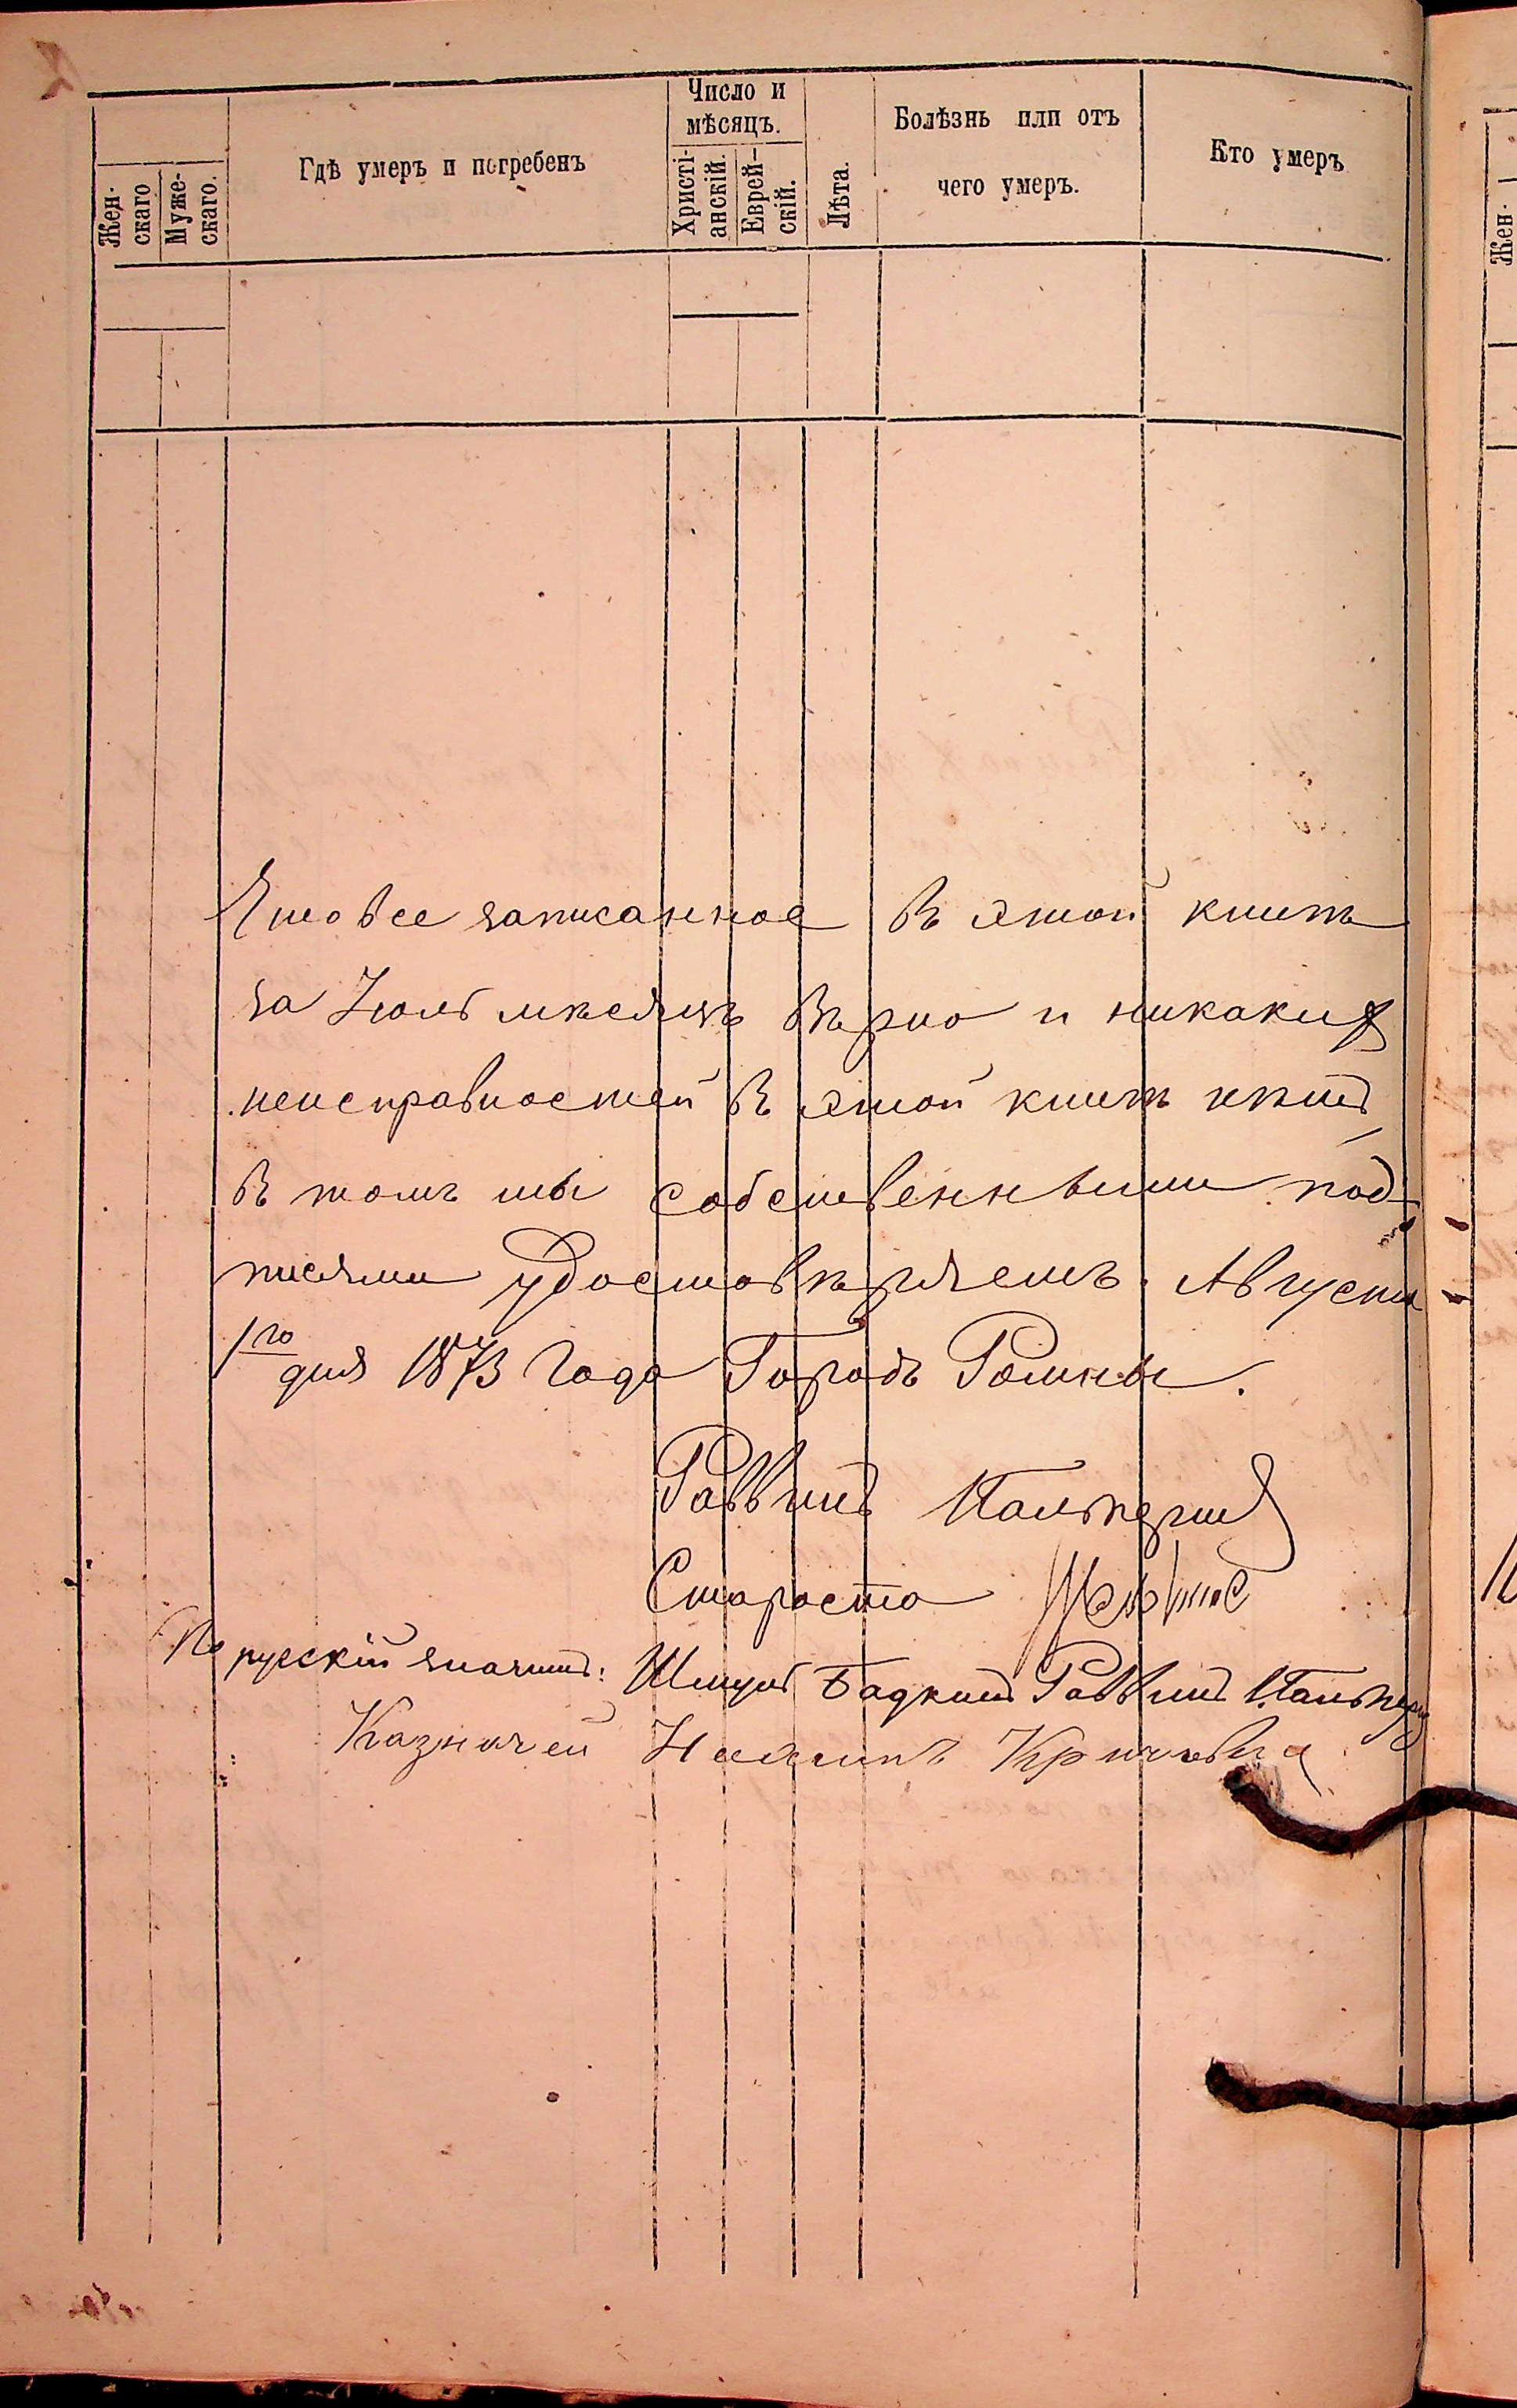 Число и
мѣсяцъ.
Жен-
скаго
Муже-
скаго.
Гдѣ умеръ и погребенъ
Христі-
анскій.
Еврей-
скій.
Лѣта.
Болѣзнь или отъ
чего умеръ.
Кто умеръ
Жен-
Что все записанное въ этой книгѣ
за Іюль мѣсяцъ вѣрно и никакихъ
неисправностей въ этой книгѣ нѣтъ
въ томъ мы собственными под-
писями удостовѣряемъ. Августа
1го дня 1873 года Городъ Ромны.
Раввинъ Гальперинъ
Староста
По русскій значитъ: Шмуль Бадкинъ Раввинъ
Казначей